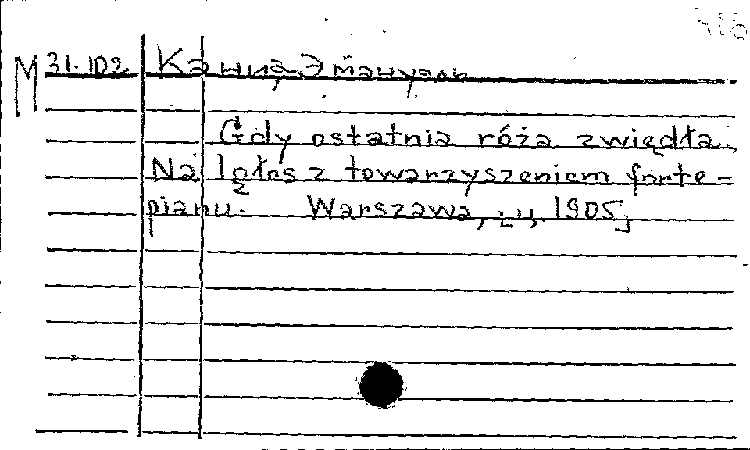 M 31.102 Кания, Эмануэль
Gdy ostatnia róża zwiędła.
Na 1 głos z towarzyszeniem forte-
pianu. Warszawa, 1905]